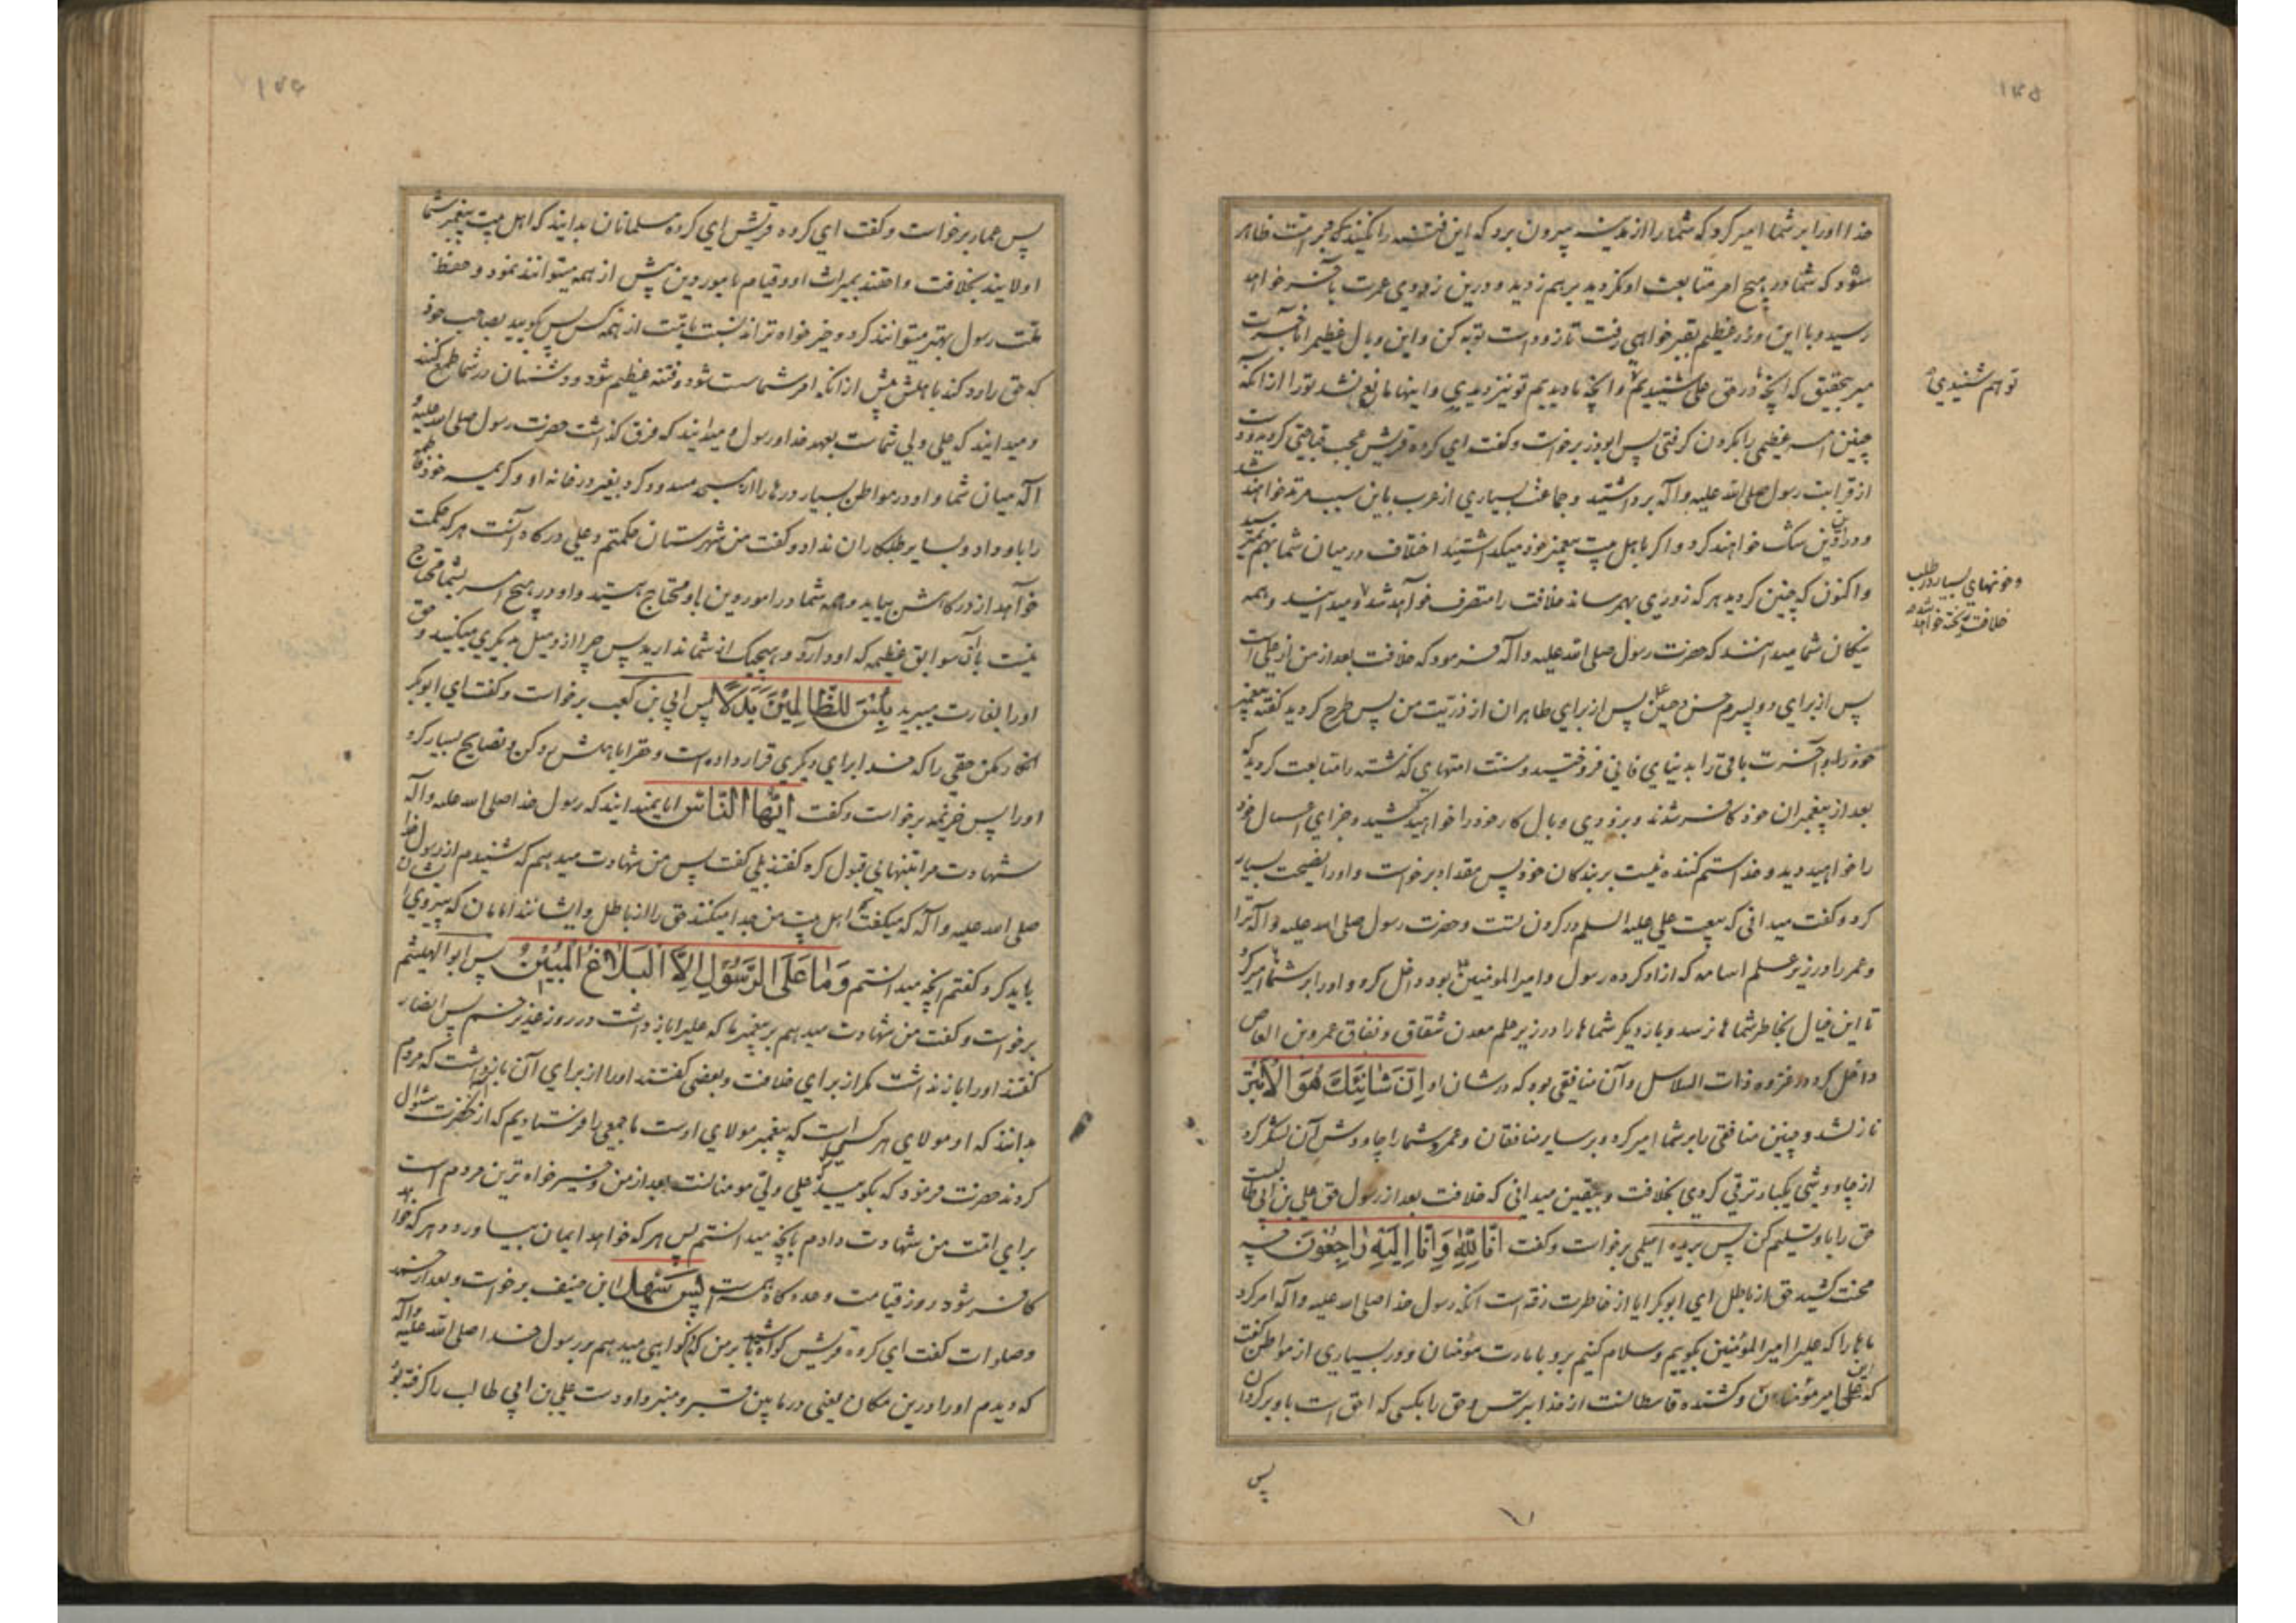 ۱۴۵
خدا او را بر شما امیر کرد که شما را از مدینه بیرون برد که این فتنه را نکنند که مبرامت ظاهر
شود که شما در هیچ امر متابعت او نکردید برهم زدید و درین زودی عمرت بآخر خواهد
رسید و با این وزر عظیم بقبر خواهی رفت تا زود است توبه کن و این وبال عظیم را بآخرت
مبر بتحقیق که آنچه ما در حق علی شنیدیم و آنچه ما دیدیم تو نیز دیدی و اینها مانع نشد تو را از آنکه
تو هم شنیدی
چنین امر عظیمی را بگردن گرفتی پس ابوذر برخاست و گفت ای گروه قریش عجب قباحتی کردید و دست
از قرابت رسول صلی الله علیه و آله برداشتید و جماعت بسیاری از عرب باین سبب مرتد خواهند شد
و در این دین شک خواهند کرد و اگر باهل بیت پیغمبر خود میگذاشتید اختلاف در میان شما بهم نمیرسید
و اکنون که چنین کردید هر که زوری بهم رساند خلافت را متصرف خواهد شد و میدانید و همه
و خونهای بسیار در طلب
خلافت ریخته خواهد شد
نیکان شما میدانند که حضرت رسول صلی الله علیه و آله فرمود که خلافت بعد از من از علی است
پس از برای دو پسرم حسن و حسین پس از برای طاهران از ذریت من پس طرح کردید گفته پیغمبر
خود را و آخرت باقی را بدنیای فانی فروختید و سنت امتهای گذشته را متابعت کردید که
بعد از پیغمبران خود کافر شدند و بزودی وبال کار خود را خواهید کشید و جزای اعمال خود
را خواهید دید و خدا ستم کننده نیست بر بندگان خود پس مقداد برخاست و او را نصیحت بسیار
کرد و گفت میدانی که بیعت علی علیه السلام در گردن تست و حضرت رسول صلی الله علیه و آله ترا
و عمر را در زیر علم اسامه که ازاد کرده رسول و امیر المومنین بود داخل کرد و او را بر شما امیر کرد
تا این خیال بخاطر شما ها نرسد و بار دیگر شما ها را در زیر علم معدن شقاق و نفاق عمرو بن العاص
داخل کرد در غزوه ذات السلاسل و آن منافقی بود که در شان او اِنَّ شَانِئَكَ هُوَ الْاَبْتَر
نازل شد و چنین منافقی را بر شما امیر کرد و بر سایر منافقان و عمرو شما را چاووش آن لشکر کرد
از چاووشی یکبار ترقی کردی بخلافت و بیقین میدانی که خلافت بعد از رسول حق علی بن ابی طالب است
حق را باو تسلیم کن پس بریده اسلمی برخاست و گفت اِنَّا لِلّٰهِ وَ اِنَّا اِلَیْهِ رَاجِعُوْنَ چه
محنت کشید حق از باطل ای ابوبکر ایا از خاطرت رفته است آنکه رسول خدا صلی الله علیه و آله امر کرد
ماها را که علی را امیر المؤمنین بگوییم و سلام کنیم برو بامارت مؤمنان و در بسیاری از مواطن گفت
که این علی امیر مؤمنان و کشنده قاسطانست از خدا بترس و حق را بکسی که احق است باو برگردان
پس
۱۴۶
پس عمار برخواست و گفت ای گروه قریش ای گروه مسلمانان بدانید که اهل بیت پیغمبر شما
اولایند بخلافت و احقند بمیراث او و قیام بامور دین بیش از همه میتوانند نمود و حفظ
ملت رسول بهتر میتوانند کرد و خیر خواه تراند نسبت بامت از همه کس پس بگویید بصاحب خود
که حق را رد کند باهلش پیش از آنکه امر شما سست شود و فتنه عظیم شود و دشمنان در شما طمع کنند
و میدانید که علی ولی شماست بعهد خدا و رسول و میدانید که فرق گذاشت حضرت رسول صلی الله علیه و
آله میان شما و او در مواطن بسیار درها را از مسجد مسدود کرد بغیر در خانه او و کریمه خود فاطمه
را باو داد و بسایر طلبکاران نداد و گفت من شهرستان حکمتم و علی درگاه آنست هر که حکمت
خواهد از درگاهش بیاید و همه شما در امور دین باو محتاج هستید و او در هیچ امر بشما محتاج
نیست با آن سوابق عظیمه که او دارد و هیچیک از شما ندارید پس چرا ازو میل بدیگری میکنید و حق
او را بغارت میبرید بِئْسَ لِلظّٰالِمِیْنَ بَدَلًا پس ابی بن کعب برخواست و گفت ای ابوبکر
انکار مکن حقی را که خدا برای دیگری قرار داده است و حق را باهلش رد کن و نصایح بسیار کرد
او را پس خزیمه برخواست و گفت اَیُّهَا النَّاس ایا نمیدانید که رسول خدا صلی الله علیه و آله
شهادت مرا بتنهایی قبول کرد گفتند بلی گفت پس من شهادت میدهم که شنیدم از رسول خدا
صلی الله علیه و آله که میگفت اهل بیت من جدا میکنند حق را از باطل و ایشانند امامان که پیروی ایشان را
باید کرد و گفتم آنچه میدانستم وَ مَا عَلَی الرَّسُوْلِ اِلَّا الْبَلَاغُ الْمُبِیْنُ پس ابو الهیثم
برخواست و گفت من شهادت میدهم بر پیغمبر ما که علی را بازداشت در روز غدیر خم پس انصار
گفتند او را باز نداشت مگر از برای خلافت و بعضی گفتند او را از برای آن بازداشت که مردم
بدانند که او مولای هر کسی است که پیغمبر مولای اوست ما جمعی را فرستادیم که از آنحضرت سئوال
کردند حضرت فرمود که بگویید علی ولی مومنانست بعد از من و خیر خواه ترین مردم است
برای امت من شهادت دادم بآنچه میدانستم پس هر که خواهد ایمان بیاورد و هر که خواهد
کافر شود روز قیامت وعده گاه همه است پس سَهْل ابن حنیف برخواست و بعد از حمد
و صلوات گفت ای گروه قریش گواه باشید بر من که گواهی میدهم بر رسول خدا صلی الله علیه و آله
که دیدم او را درین مکان یعنی در مابین قبر و منبر و او دست علی بن ابی طالب را گرفته بود